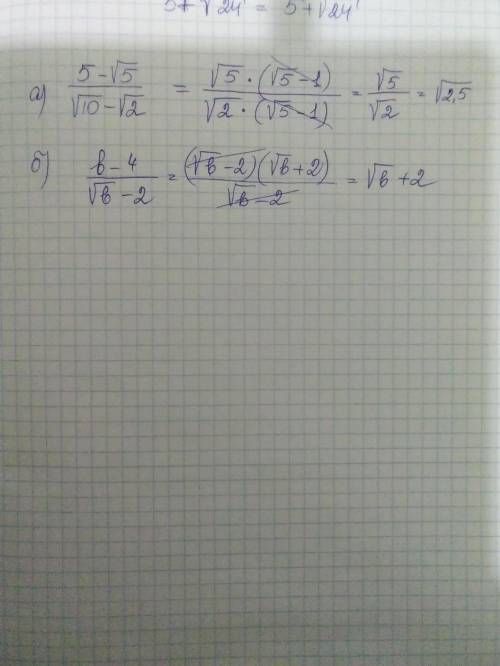 5+√24 = 5+√24
а) (5-√5)/(√10-√2) = (√5·(√5-1))/(√2·(√5-1)) = √5/√2 = √2,5
б) (b-4)/(√b-2) = ((√b-2)(√b+2))/(√b-2) = √b+2